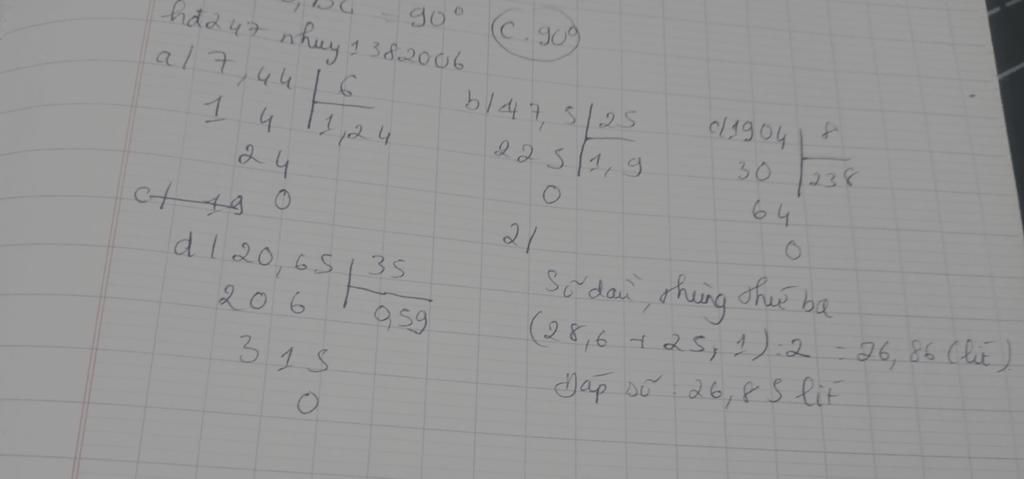 = 90° C. 90°
hđ247 nhuy1382006
a/ 7,44 6
1 4 1,24
24
0
b/ 47,5 25
22 5 1,9
0
c/ 1904 8
30 238
64
0
c/ 19
d/ 20,65 35
20 6 0,59
3 15
0
2/
Số dầu thùng thứ ba
(28,6 + 25,1) : 2 = 26,86 (lít)
Đáp số : 26,85 lít